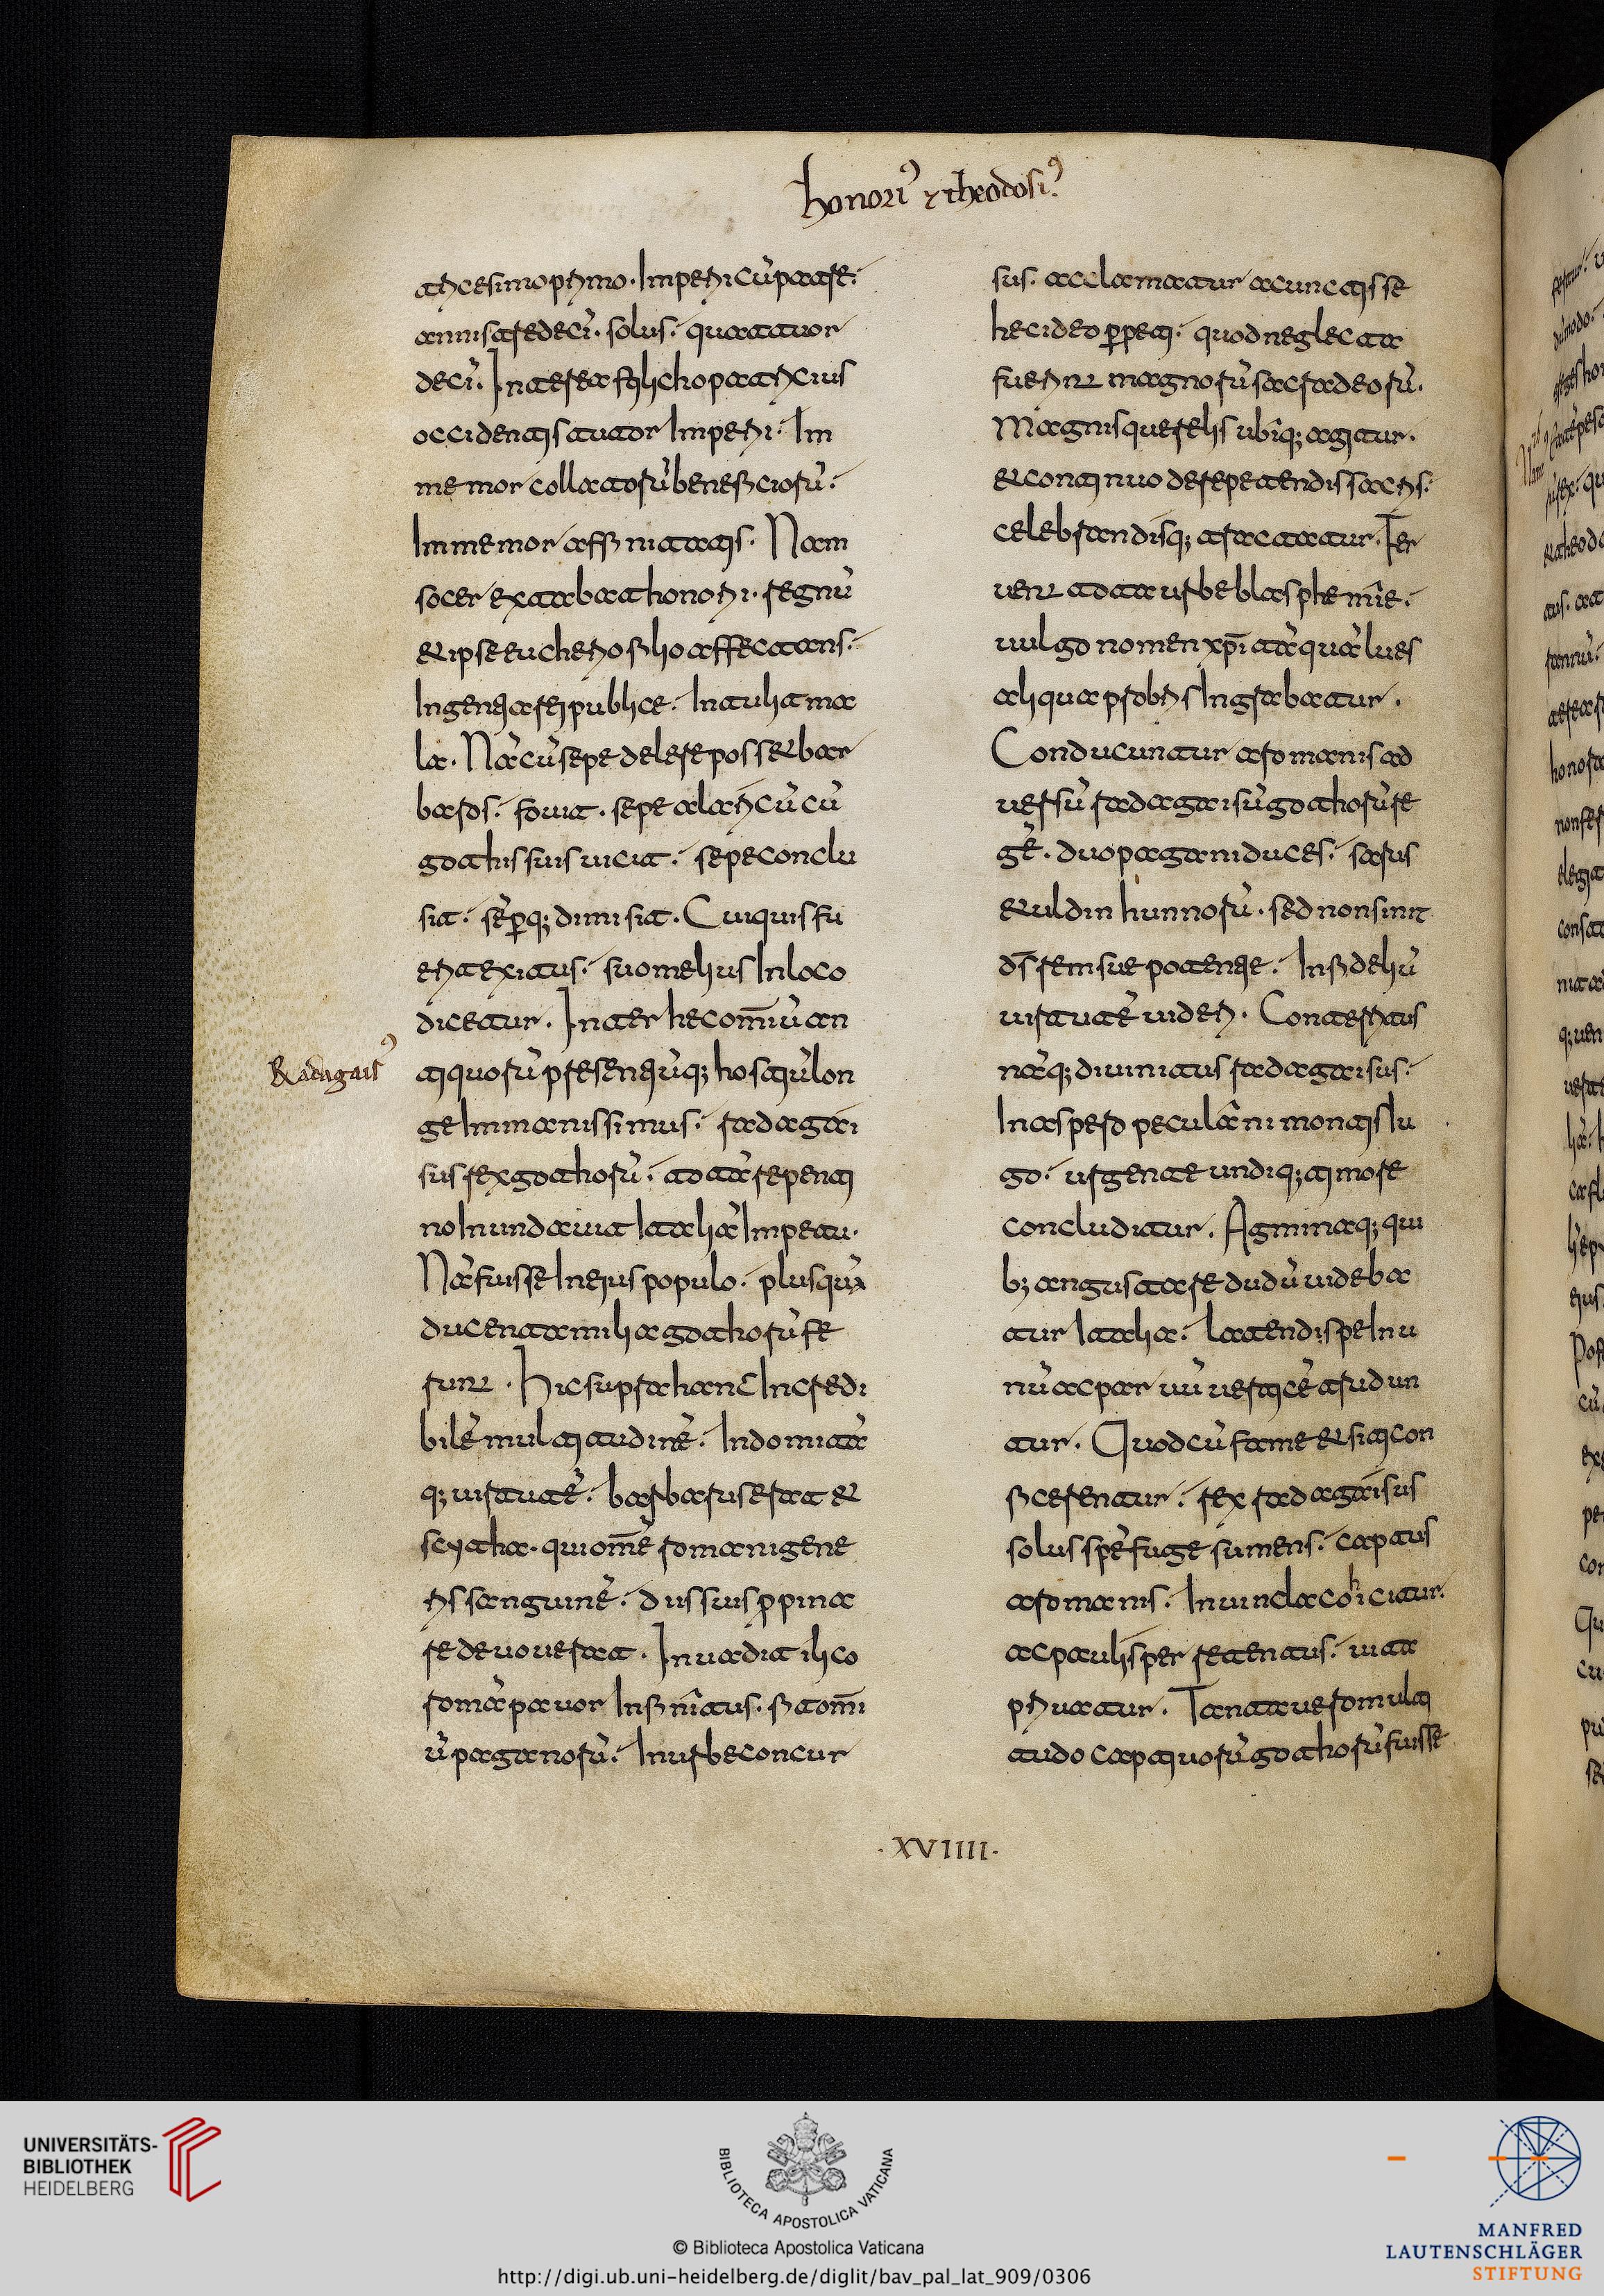 honori⁹ & theodosi⁹
tricesimoprimo. Imperii cū patre.
annis tredecī. solus. quattuor
decī. Interea stilicho patricius
occidentis tutor Imperii. Im
memor collatorū beneficiorū.
Immemor affinitatis. Nam
socer extabat honorii. regnū
& ipse eucherio filio affectans.
Ingentia rei publice. Intulit ma
la. Nā cū sepe delere posset bar
baros. fovit. sepe alaricū cū
gothis suis vicit. sepe conclu
sit. sēpq; dimisit. Cui quis fu
erit exitus. suo melius In loco
dicetur. Inter hec om̄iū an
tiquorū presentiūq; hostiū lon
Radagais⁹
ge Immanissimus. radagai
sus rex gothorū. totā repenti
no Inundavit Italiā Impetu.
Nā fuisse In eius populo. plusquā
ducenta milia gothorū fe
runt. Hic supra hanc Incredi
bilē multitudinē. Indomitā
q; virtutē. barbarus erat &
scytha. qui om̄ē romani gene
ris sanguinē. diis suis ppina
re devoverat. Invadit ilico
romā pavor Infinitus. fit om̄i
ū paganorū. In urbe concur
sus. acclamatur a cunctis se
hec ideo ppeti. quod neglecta
fuerint magnorū sacra deorū.
Magnis querelis ubiq; agitur.
& continuo de repetendis sacris.
celebrandisq; tractatur. Fer
vent tota urbe blasphemie.
vulgo nomen xp̄i tāquā lues
aliqua probris Ingrabatur.
Conducuntur a romanis ad
versū radagaisū gothorū re
gē. duo pagani duces. sarus
& uldin hunnorū. sed non sinit
d̄s rem sue potentie. Infideliū
virtutē videri. Conterritus
nāq; divinitus radagaisus.
In aspero peculani montis Iu
go. urgente undiq; timore
concluditur. Agminaq; qui
b; angusta re dudū videba
tur Italia. latendi spe In u
nū ac parvū verticē trudun
tur. Quod cū fame & siti con
ficerentur. rex radagaisus
solus spē fuge sumens. captus
a romanis. In vincla coicitur.
ac paulisper retentus. vita
privatur. Tanta vero multi
tudo captivorū gothorū fuisse
·XVIIII·
UNIVERSITÄTS-
BIBLIOTHEK
HEIDELBERG
BIBLIOTECA APOSTOLICA VATICANA
© Biblioteca Apostolica Vaticana
http://digi.ub.uni-heidelberg.de/diglit/bav_pal_lat_909/0306
MANFRED
LAUTENSCHLÄGER
STIFTUNG